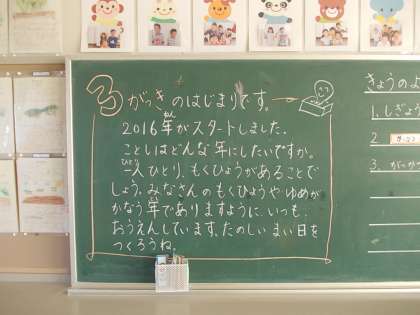 3がっきのはじまりです。
2016年がスタートしました。
ねん
ことしはどんな年にしたいですか。
ひとり
一人ひとり、もくひょうがあることで
しょう。みなさんのもくひょうや ゆめが
かなう年でありますように、いつも
おうえんしています。たのしい まい日を
つくろうね。
きょうのよ
1. しぎょう
2.
3. がっ